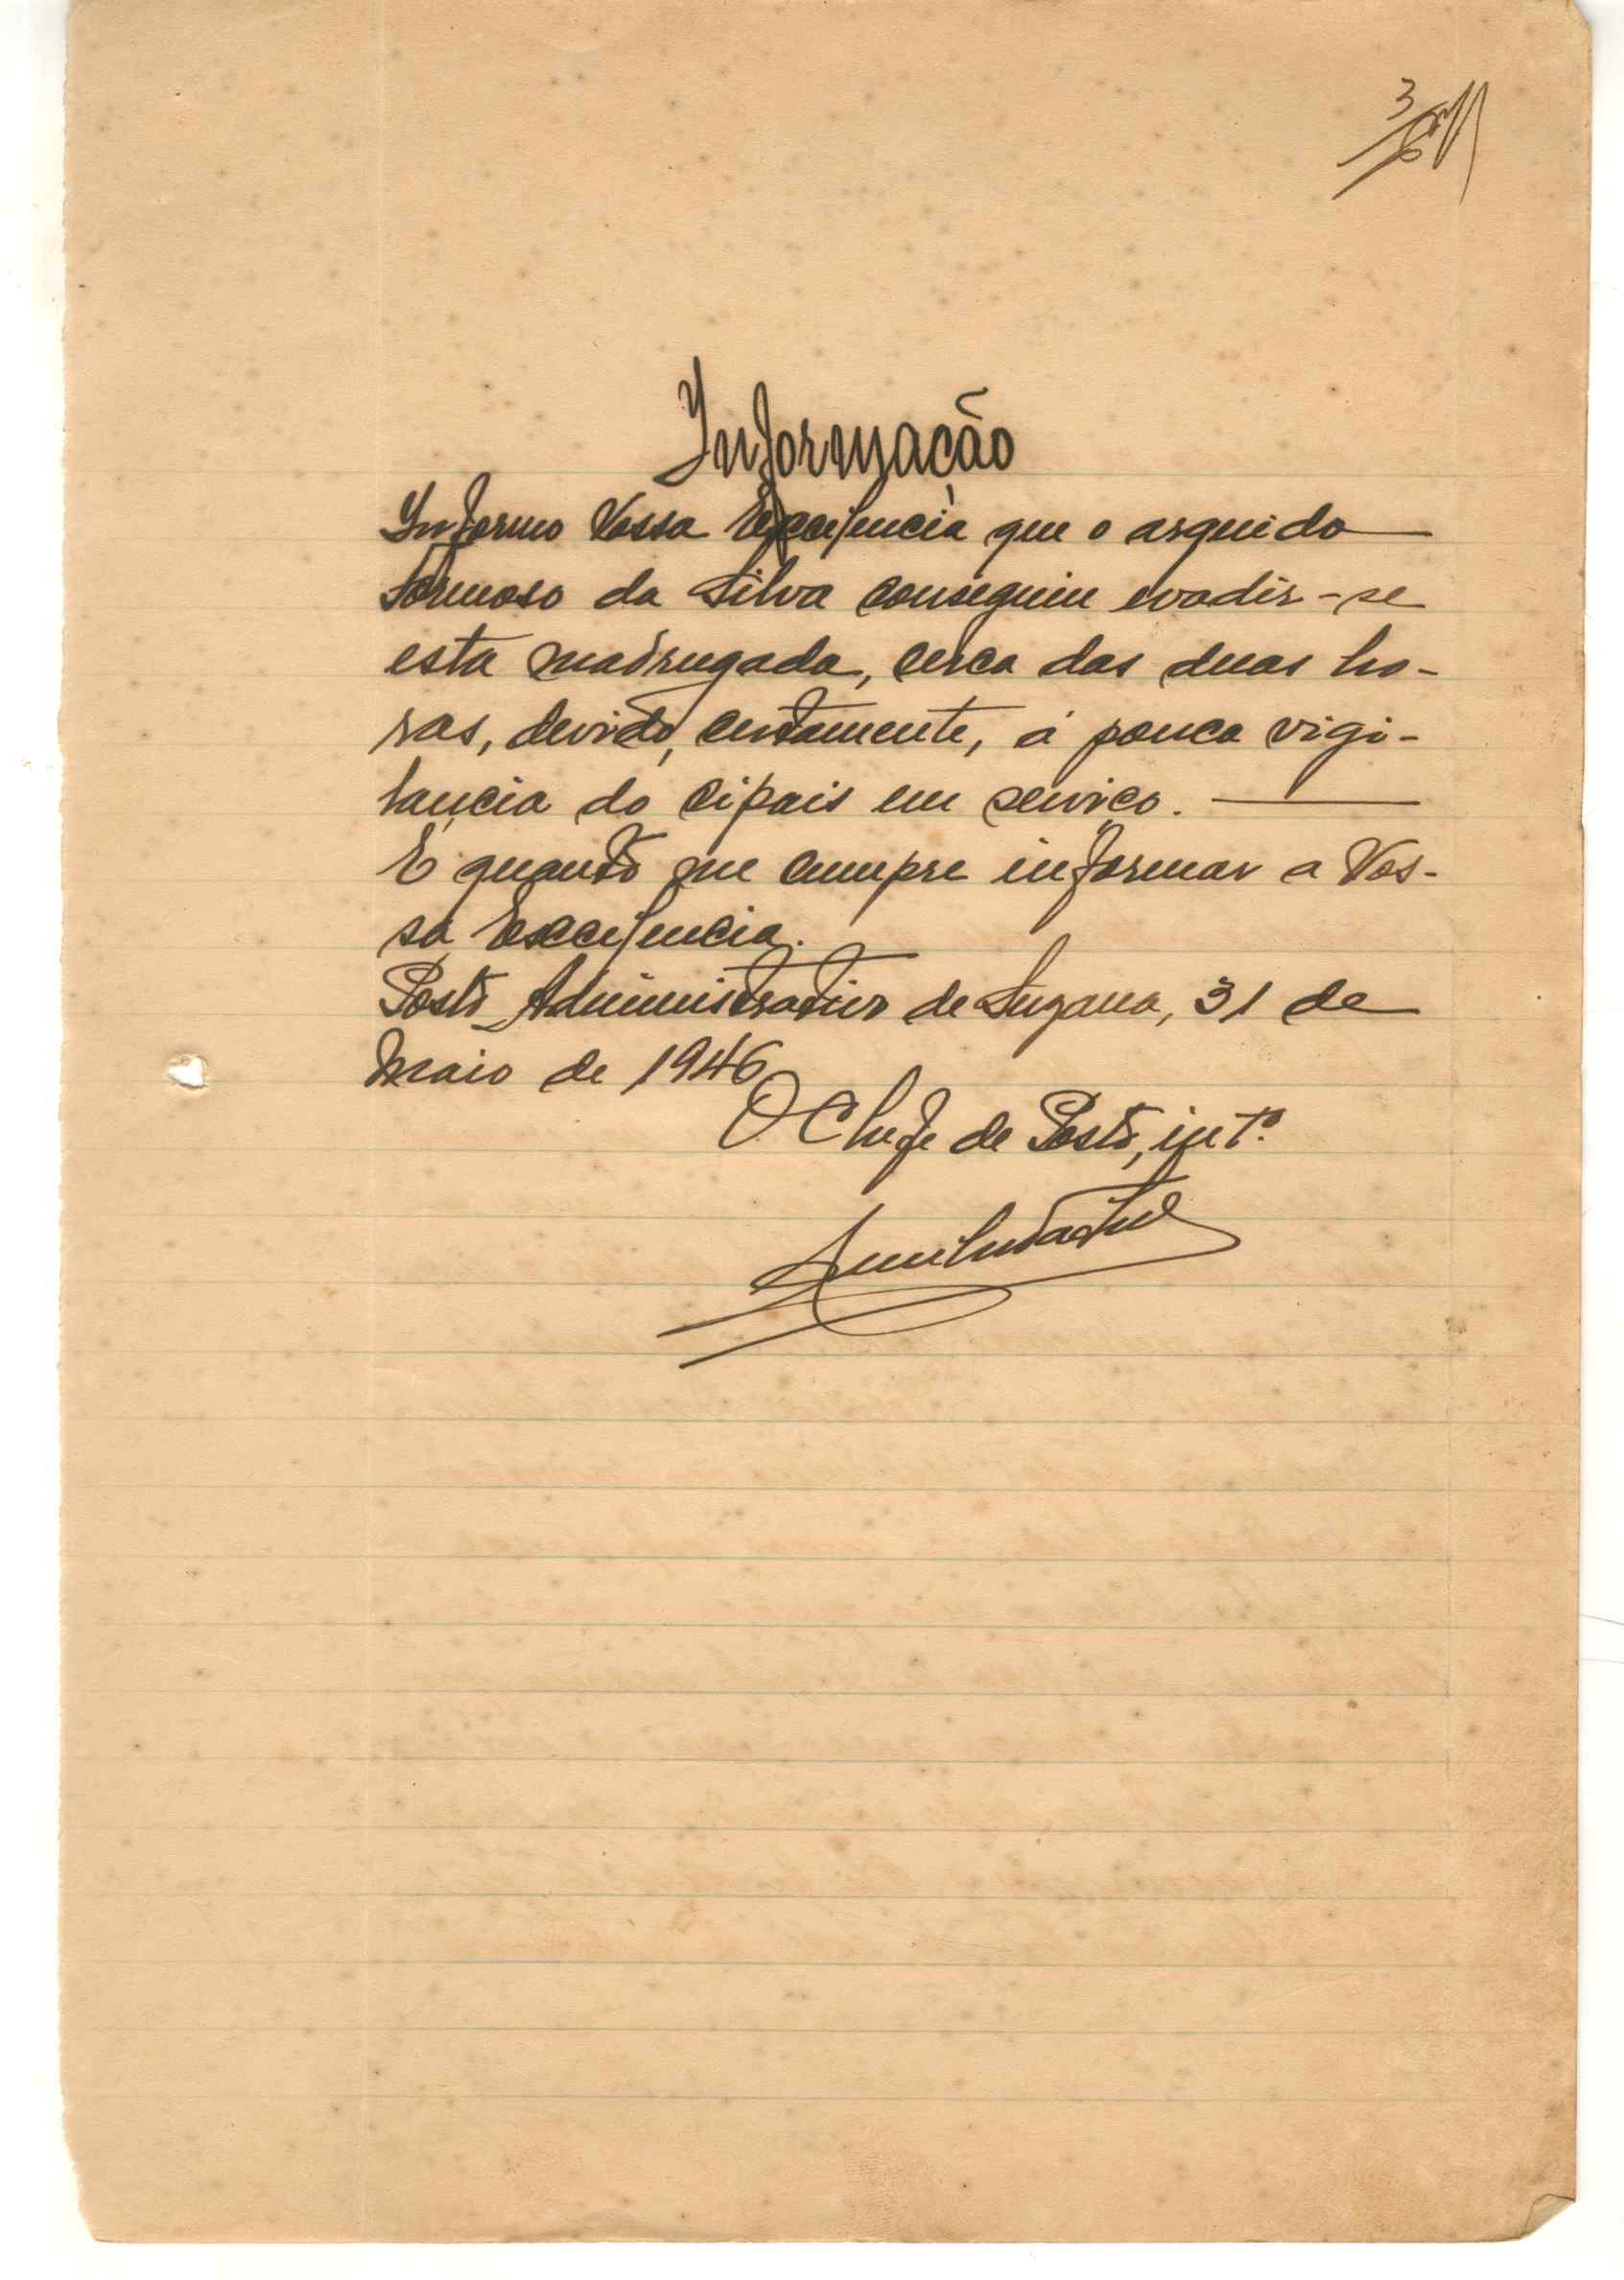 3
Informação
Informo Vossa Excelencia que o arguido
Formoso da Silva conseguiu evadir-se
esta madrugada, cerca das duas ho-
ras, devido, certamente, á pouca vigi-
lancia do cipais em serviço.
É quanto me cumpre informar a Vos-
sa Excelencia.
Posto Administrativo de Suzana, 31 de
Maio de 1946
O Chefe de Posto, intº.